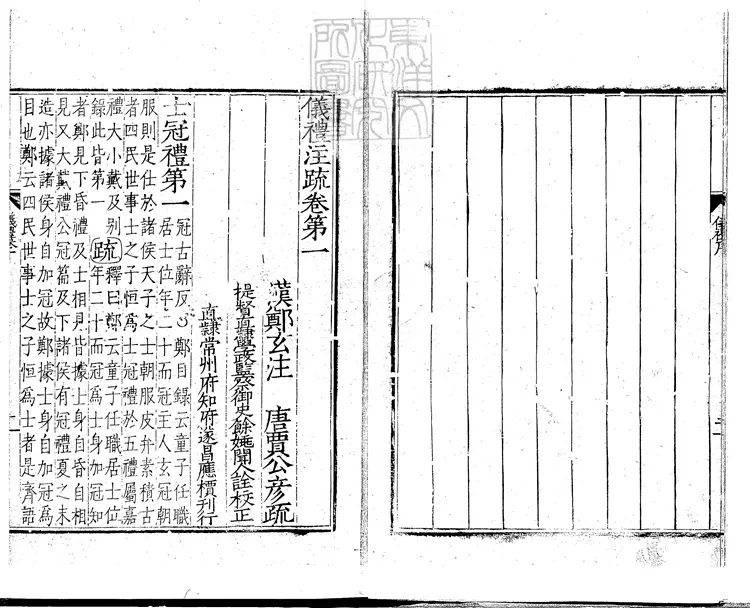 東洋文
化研究
所圖書
儀禮序
二
儀禮注疏卷第一
漢鄭玄注 唐賈公彦疏
提督直隷學政監察御史餘姚聞人詮校正
直隷常州府知府遂昌應檟刊行
士冠禮第一
冠古辭反○鄭目録云童子任職
居士位年二十而冠主人玄冠朝
服則是仕於諸侯天子之士朝服皮弁素積古
者四民世事士之子恒爲士冠禮於五禮屬嘉
禮大小戴及别
録此皆第一
疏
釋曰鄭云童子任職居士位
年二十而冠爲士身加冠知
者鄭見下昏禮及士相見皆據士身自昏自相
見又大戴禮公冠篇及下諸侯有冠禮夏之末
造亦據諸侯身自加冠故鄭據士身自加冠爲
目也鄭云四民世事士之子恒爲士者是齊語